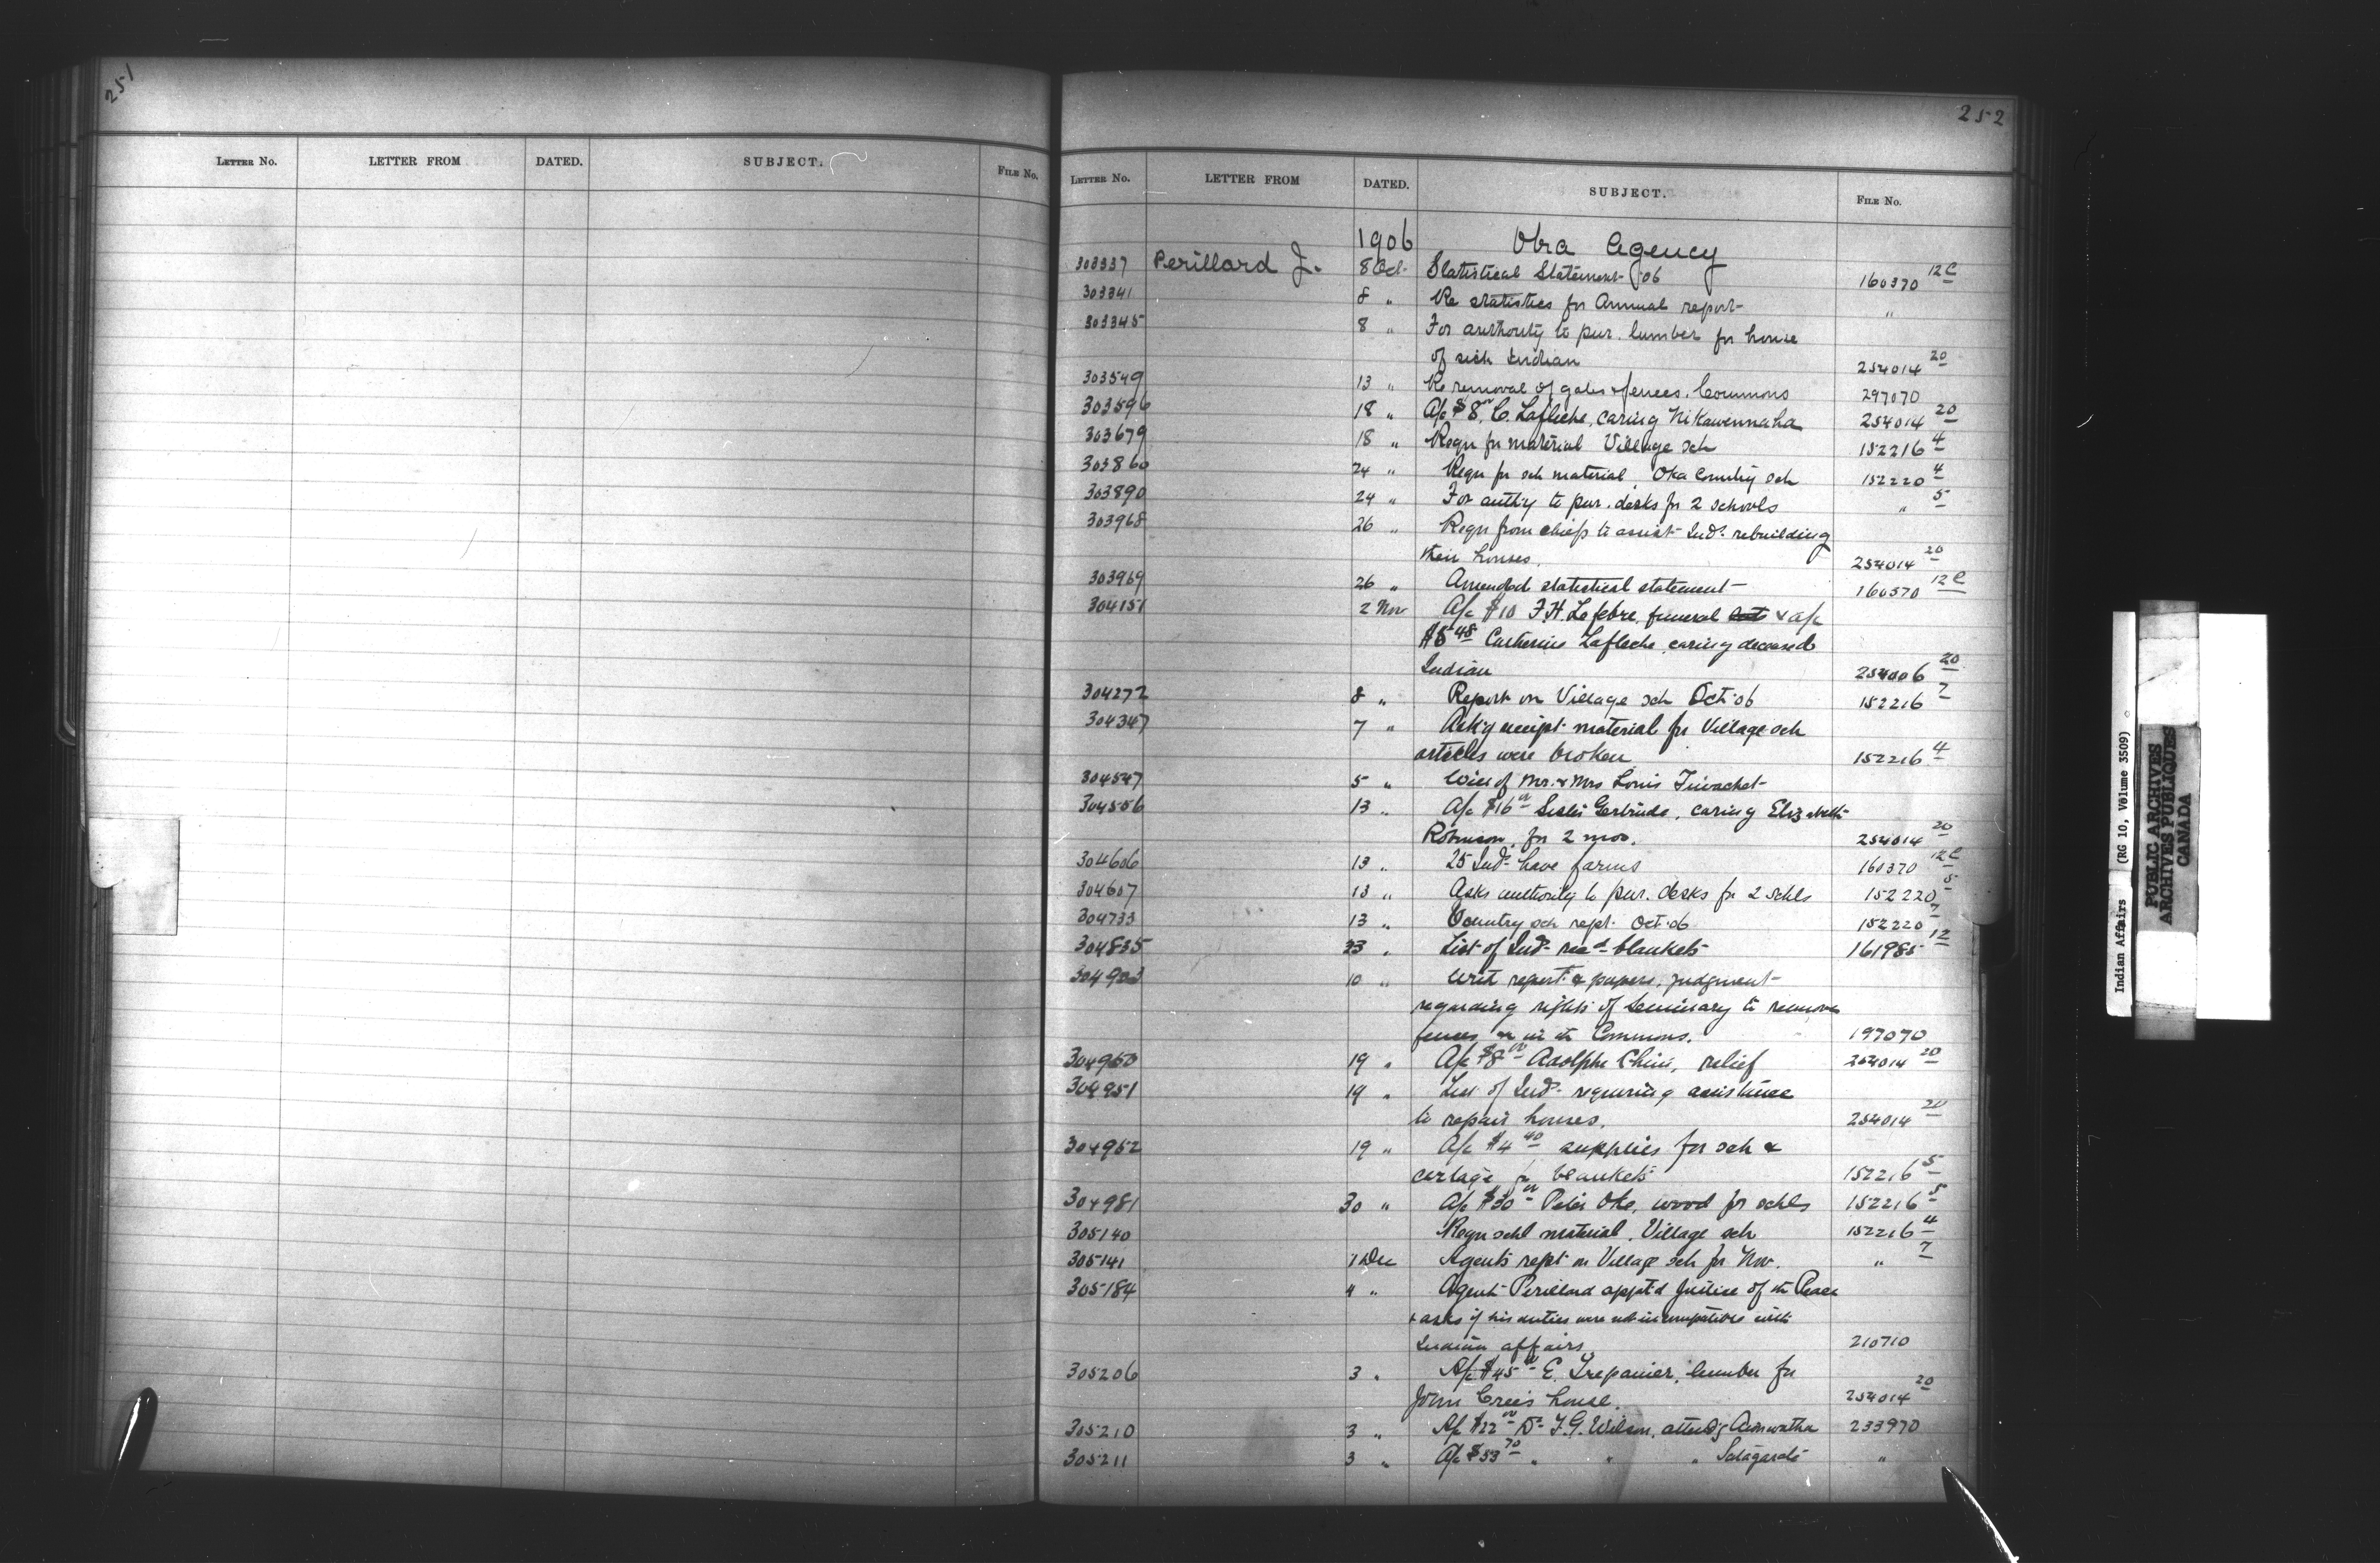 251
LETTER NO. LETTER FROM DATED. SUBJECT. FILE NO.
252
LETTER NO. LETTER FROM DATED. SUBJECT. FILE NO.
1906 Oka Agency
303337 Perillard J. 8 Oct. Statistical Statement '06 160370 12C
303341 8 " Re statistics for Annual report "
303345 8 " For authority to pur. lumber for house
of sick Indian 254014 20
303549 13 " Re removal of gates & fences. Commons 297070
303596 18 " A/c $8.00 C. Lafleche, caring Nikawennaha 254014 20
303679 18 " Reqn for material Village sch 152216 4
303860 24 " Reqn for sch material, Oka Country sch 152220 4
303890 24 " For auth'y to pur. desks for 2 schools " 5
303968 26 " Reqn from chiefs to assist Inds. rebuilding
their houses. 254014 20
303969 26 " Amended statistical statement 160370 12C
304151 2 Nov A/c $10 F.H. Lefebre, funeral & a/c
$5 48 Catherine Lafleche, caring deceased
Indian 254006 20
304272 8 " Report on Village sch Oct. 06 152216 7
304347 7 " Ack'g receipt material for Village sch
articles were broken 152216 4
304547 5 " Will of Mr. & Mrs Louis
304556 13 " A/c $16 00 Sister Gertrude, caring Elizabeth
Robinson, for 2 mos. 254014 20
304606 13 " 25 Inds. have farms 160370 12C
304607 13 " Asks authority to pur. desks for 2 schls 152220 5
304733 13 " Country sch rept. Oct. 06 152220 7
304835 23 " List of Inds. recd. blankets 161985 12
304903 10 " Writ report & papers, judgment
regarding rights of Seminary to remove
fences on in th Commons. 197070
304950 19 " A/c $8 00 Adolphe Chini, relief 254014 20
304951 19 " List of Inds. requiring assistance
to repair houses. 254014 20
304952 19 " A/c $4 40 supplies for sch &
cartage for blankets 152216 5
304981 30 " A/c $30 00 Peter Oke, wood for schls 152216 5
305140 Reqn schl material, Village sch 152216 4
305141 1 Dec Agent's rept on Village sch for Nov. " 7
305184 4 " Agent Perillard appt'd Justice of th Peace
& asks if his duties were not incompatible with
Indian affairs. 210710
305206 3 " A/c $45 E. Trepanier, lumber for
John Cree's house. 254014 20
305210 3 " A/c $22 00 Dr. F.G. Wilson, attend'g Aionwatha 233970
305211 3 " A/c $53 70 " " " "
Indian Affairs (RG 10, Volume 3509)
PUBLIC ARCHIVES
ARCHIVES PUBLIQUES
CANADA